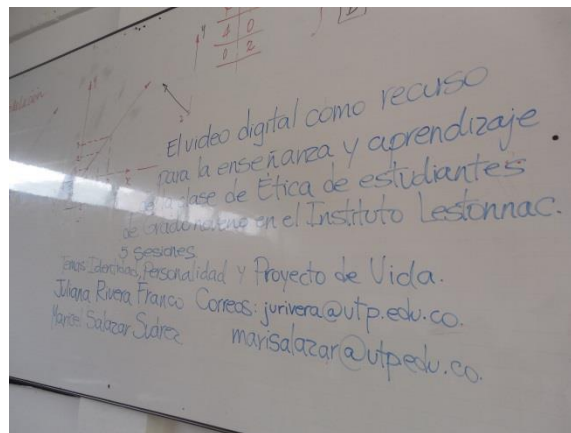 y
1 0
0 2
El video digital como recurso
para la enseñanza y aprendizaje.
en la clase de Ética de estudiantes
de Grado noveno en el Instituto Lestonnac.
5 sesiones
Temas: Identidad, Personalidad y Proyecto de Vida.
Juliana Rivera Franco Correos: jurivera@utp.edu.co.
Maricel Salazar Suárez marisalazar@utp.edu.co.